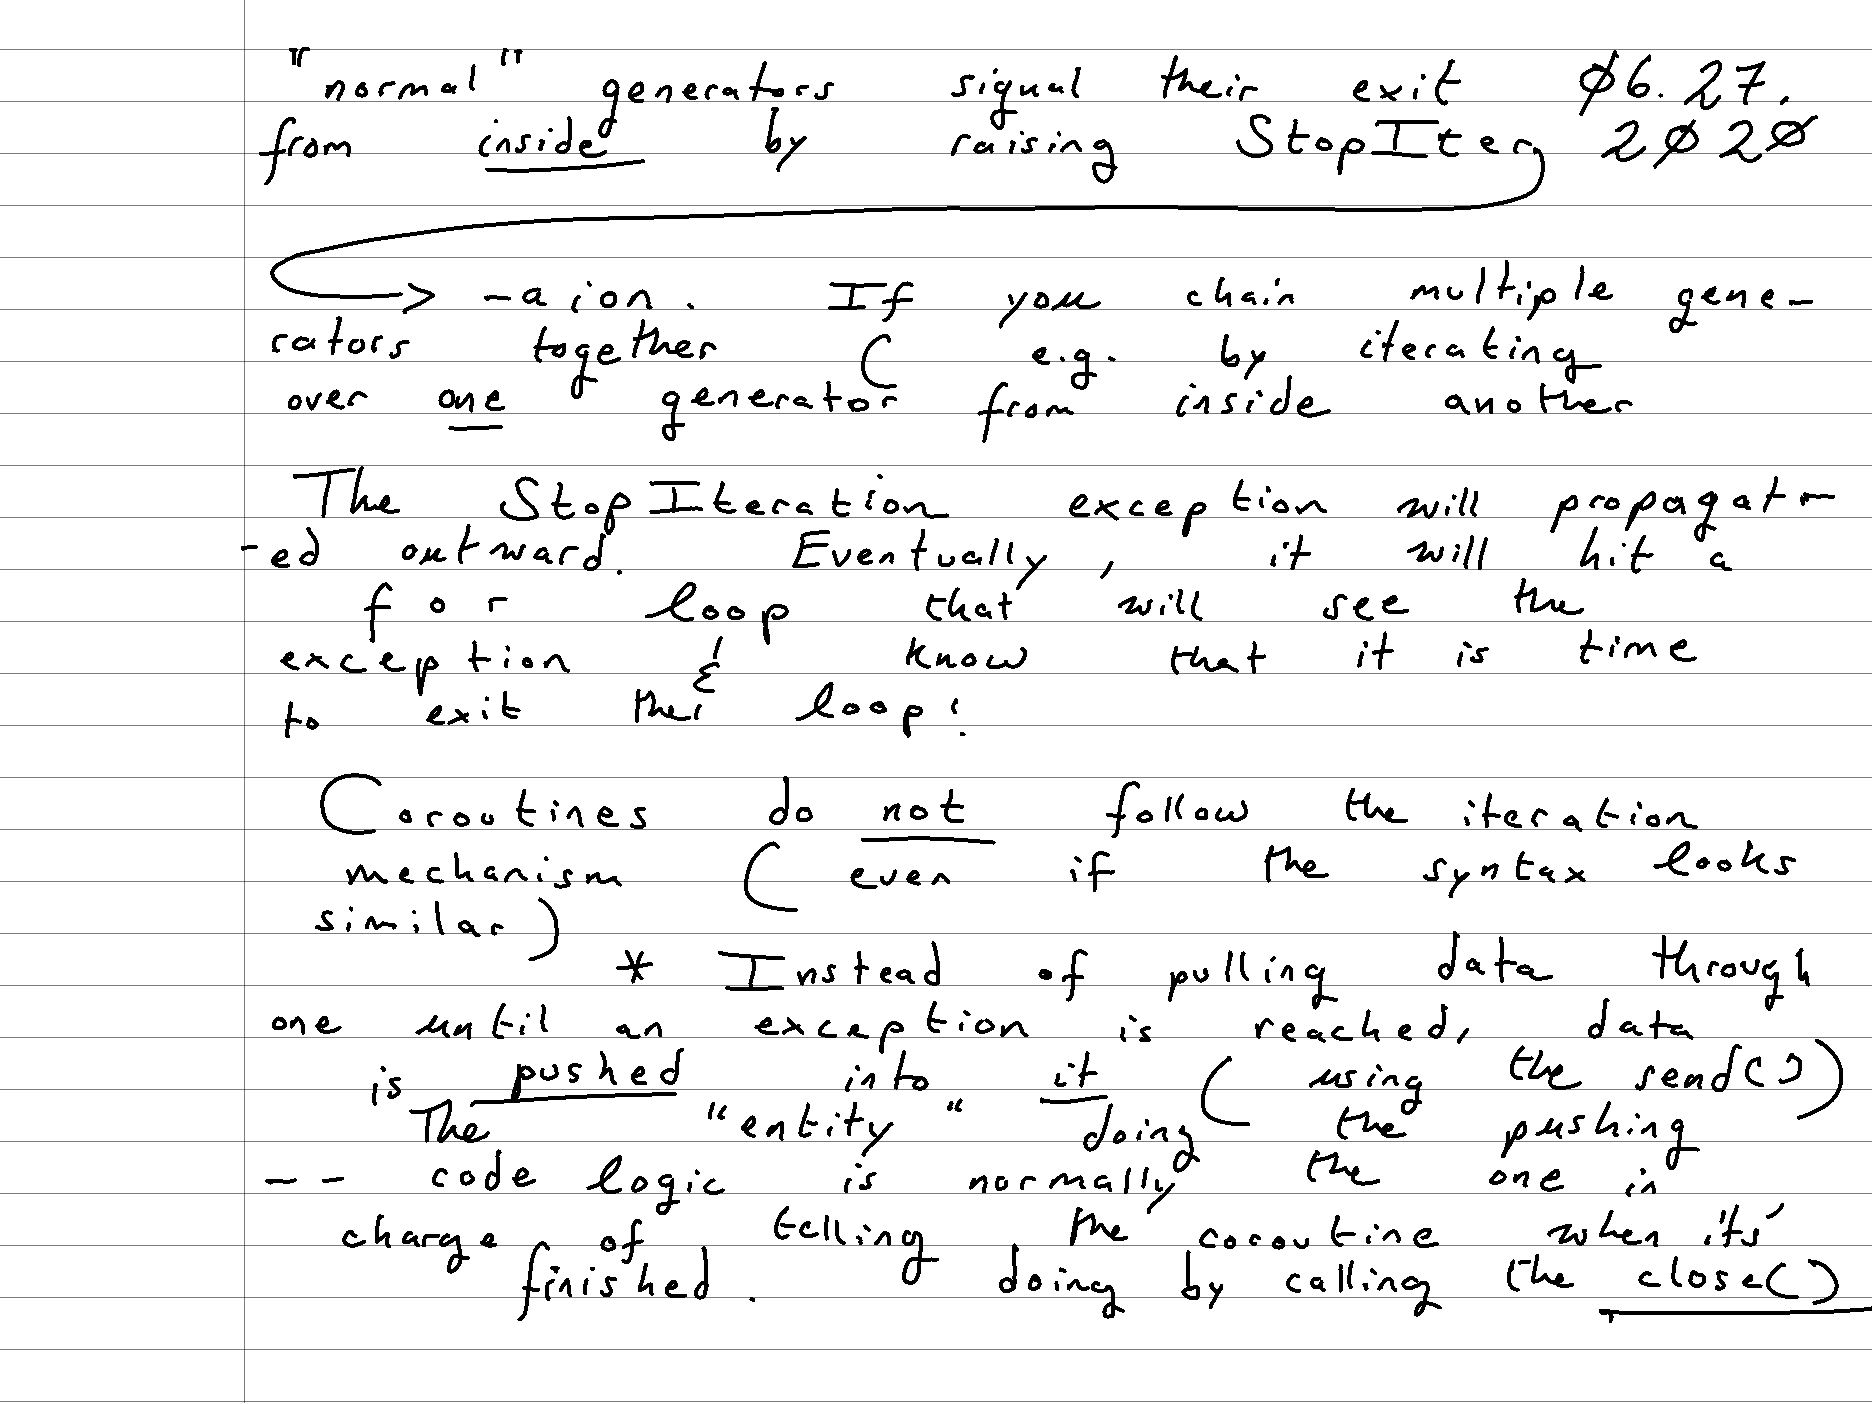 "normal" generators signal their exit Ø6.27.
from inside by raising StopIter 2Ø2Ø
-a ion. If you chain multiple gene-
rators together ( e.g. by iterating
over one generator from inside another
The StopIteration exception will propagat-
-ed outward. Eventually, it will hit a
for loop that will see the
exception & know that it is time
to exit the loop!
Coroutines do not follow the iteration
mechanism ( even if the syntax looks
similar )
* Instead of pulling data through
one until an exception is reached, data
is pushed into it ( using the send() )
The "entity" doing the pushing
-- code logic is normally the one in
charge of telling the coroutine when it's
finished. doing by calling the close()